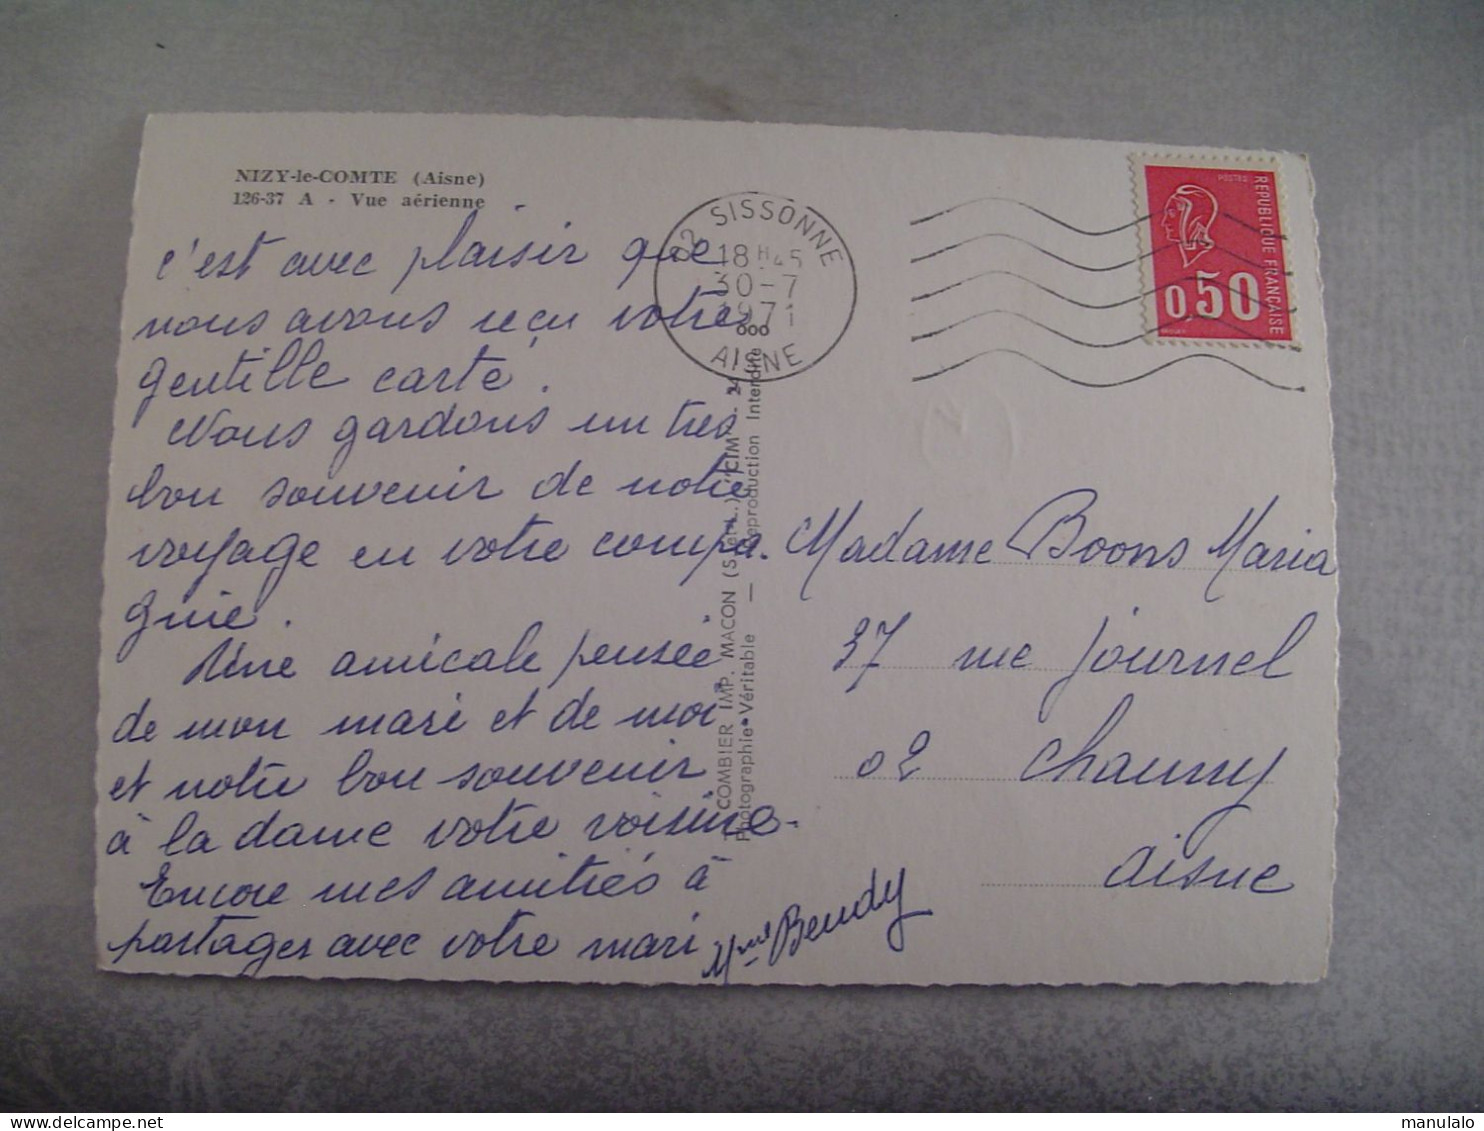 NIZY-le-COMTE (Aisne)
126-37 A - Vue aérienne
c'est avec plaisir que
nous avons reçu votre
gentille carte.
Nous gardons un tres
bon souvenir de notre
voyage en votre compa.
gnie.
Une amicale pensée
de mon mari et de moi
et notre bon souvenir
à la dame votre voisine.
Encore mes amitiés à
partager avec votre mari
Mme Beudy
COMBIER IMP. MACON (S.-et-L.) "CIM"
Photographie Véritable — Reproduction Interdite
02 SISSONNE
18 H 45
30-7
1971
AISNE
POSTES
REPUBLIQUE FRANÇAISE
0,50
Madame Boons Maria
37 rue Journel
02 Chauny
Aisne
www.delcampe.net
manulalo